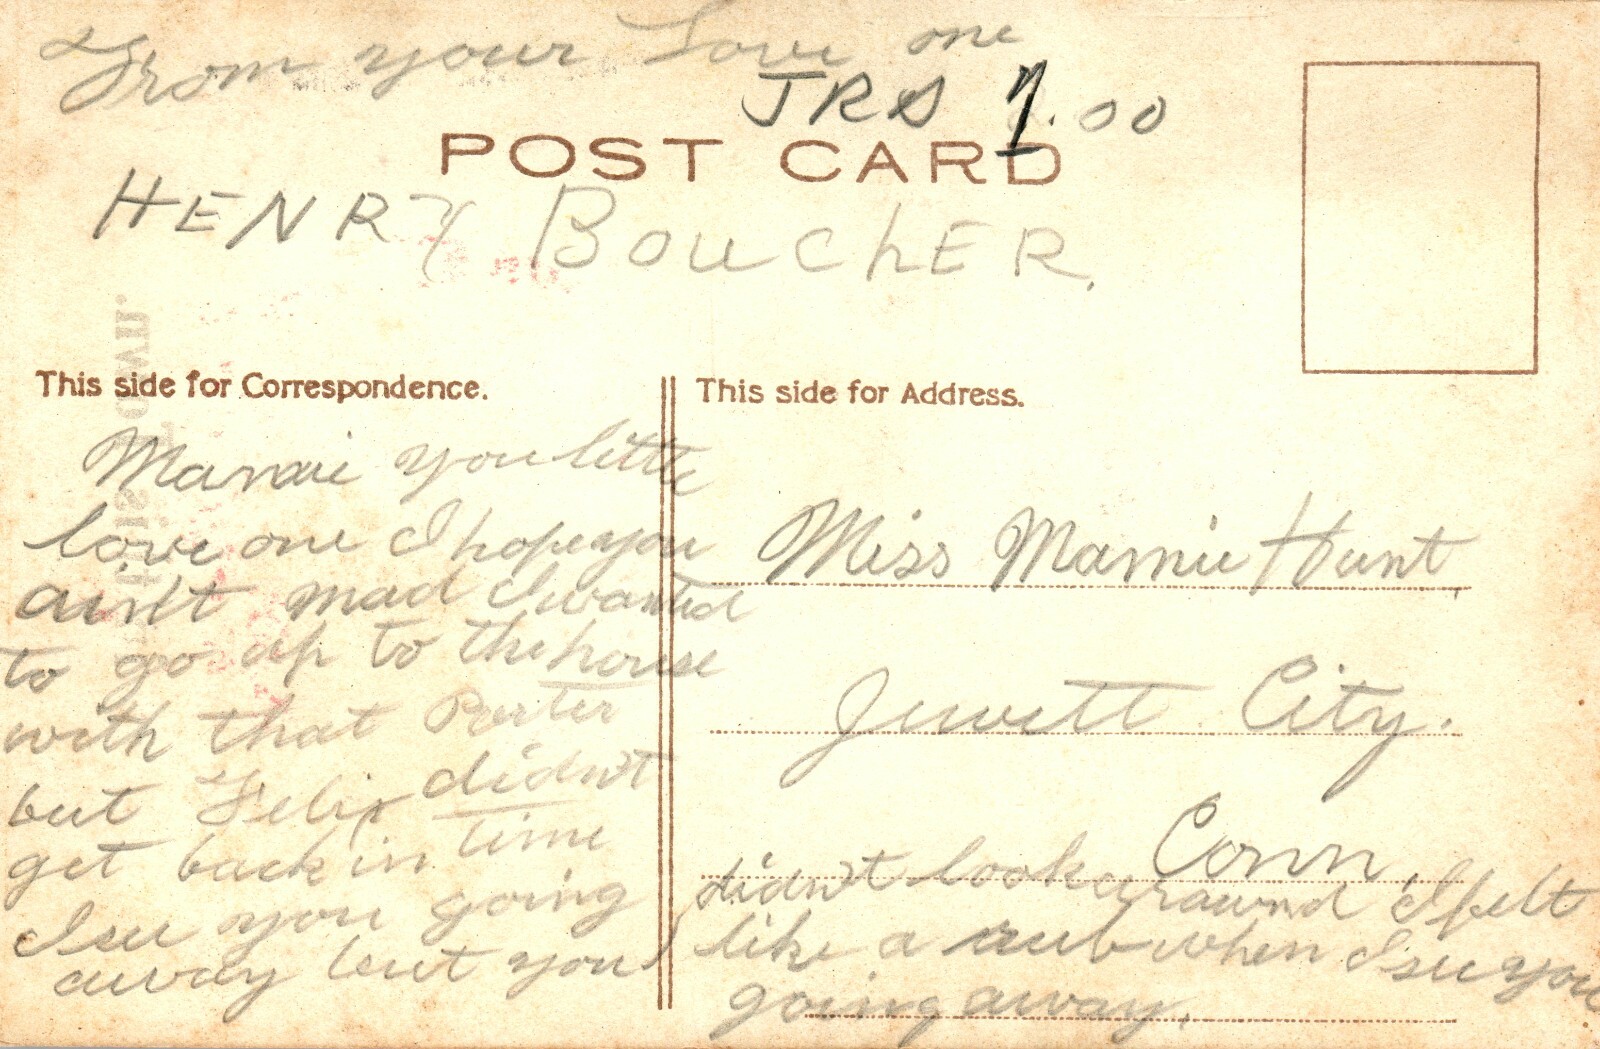 From your Love one
JRS 7.00
POST CARD
HENRY BOUCHER.
This side for Correspondence.
Mamie you little
love one I hope you
ain't mad I wanted
to go up to the house
with that Porter
but Felix didn't
get back in time
I see you going
away but you
This side for Address.
Miss Mamie Hunt
Jewett City.
Conn.
didn't look around I felt
like a rub when I see you
going away.